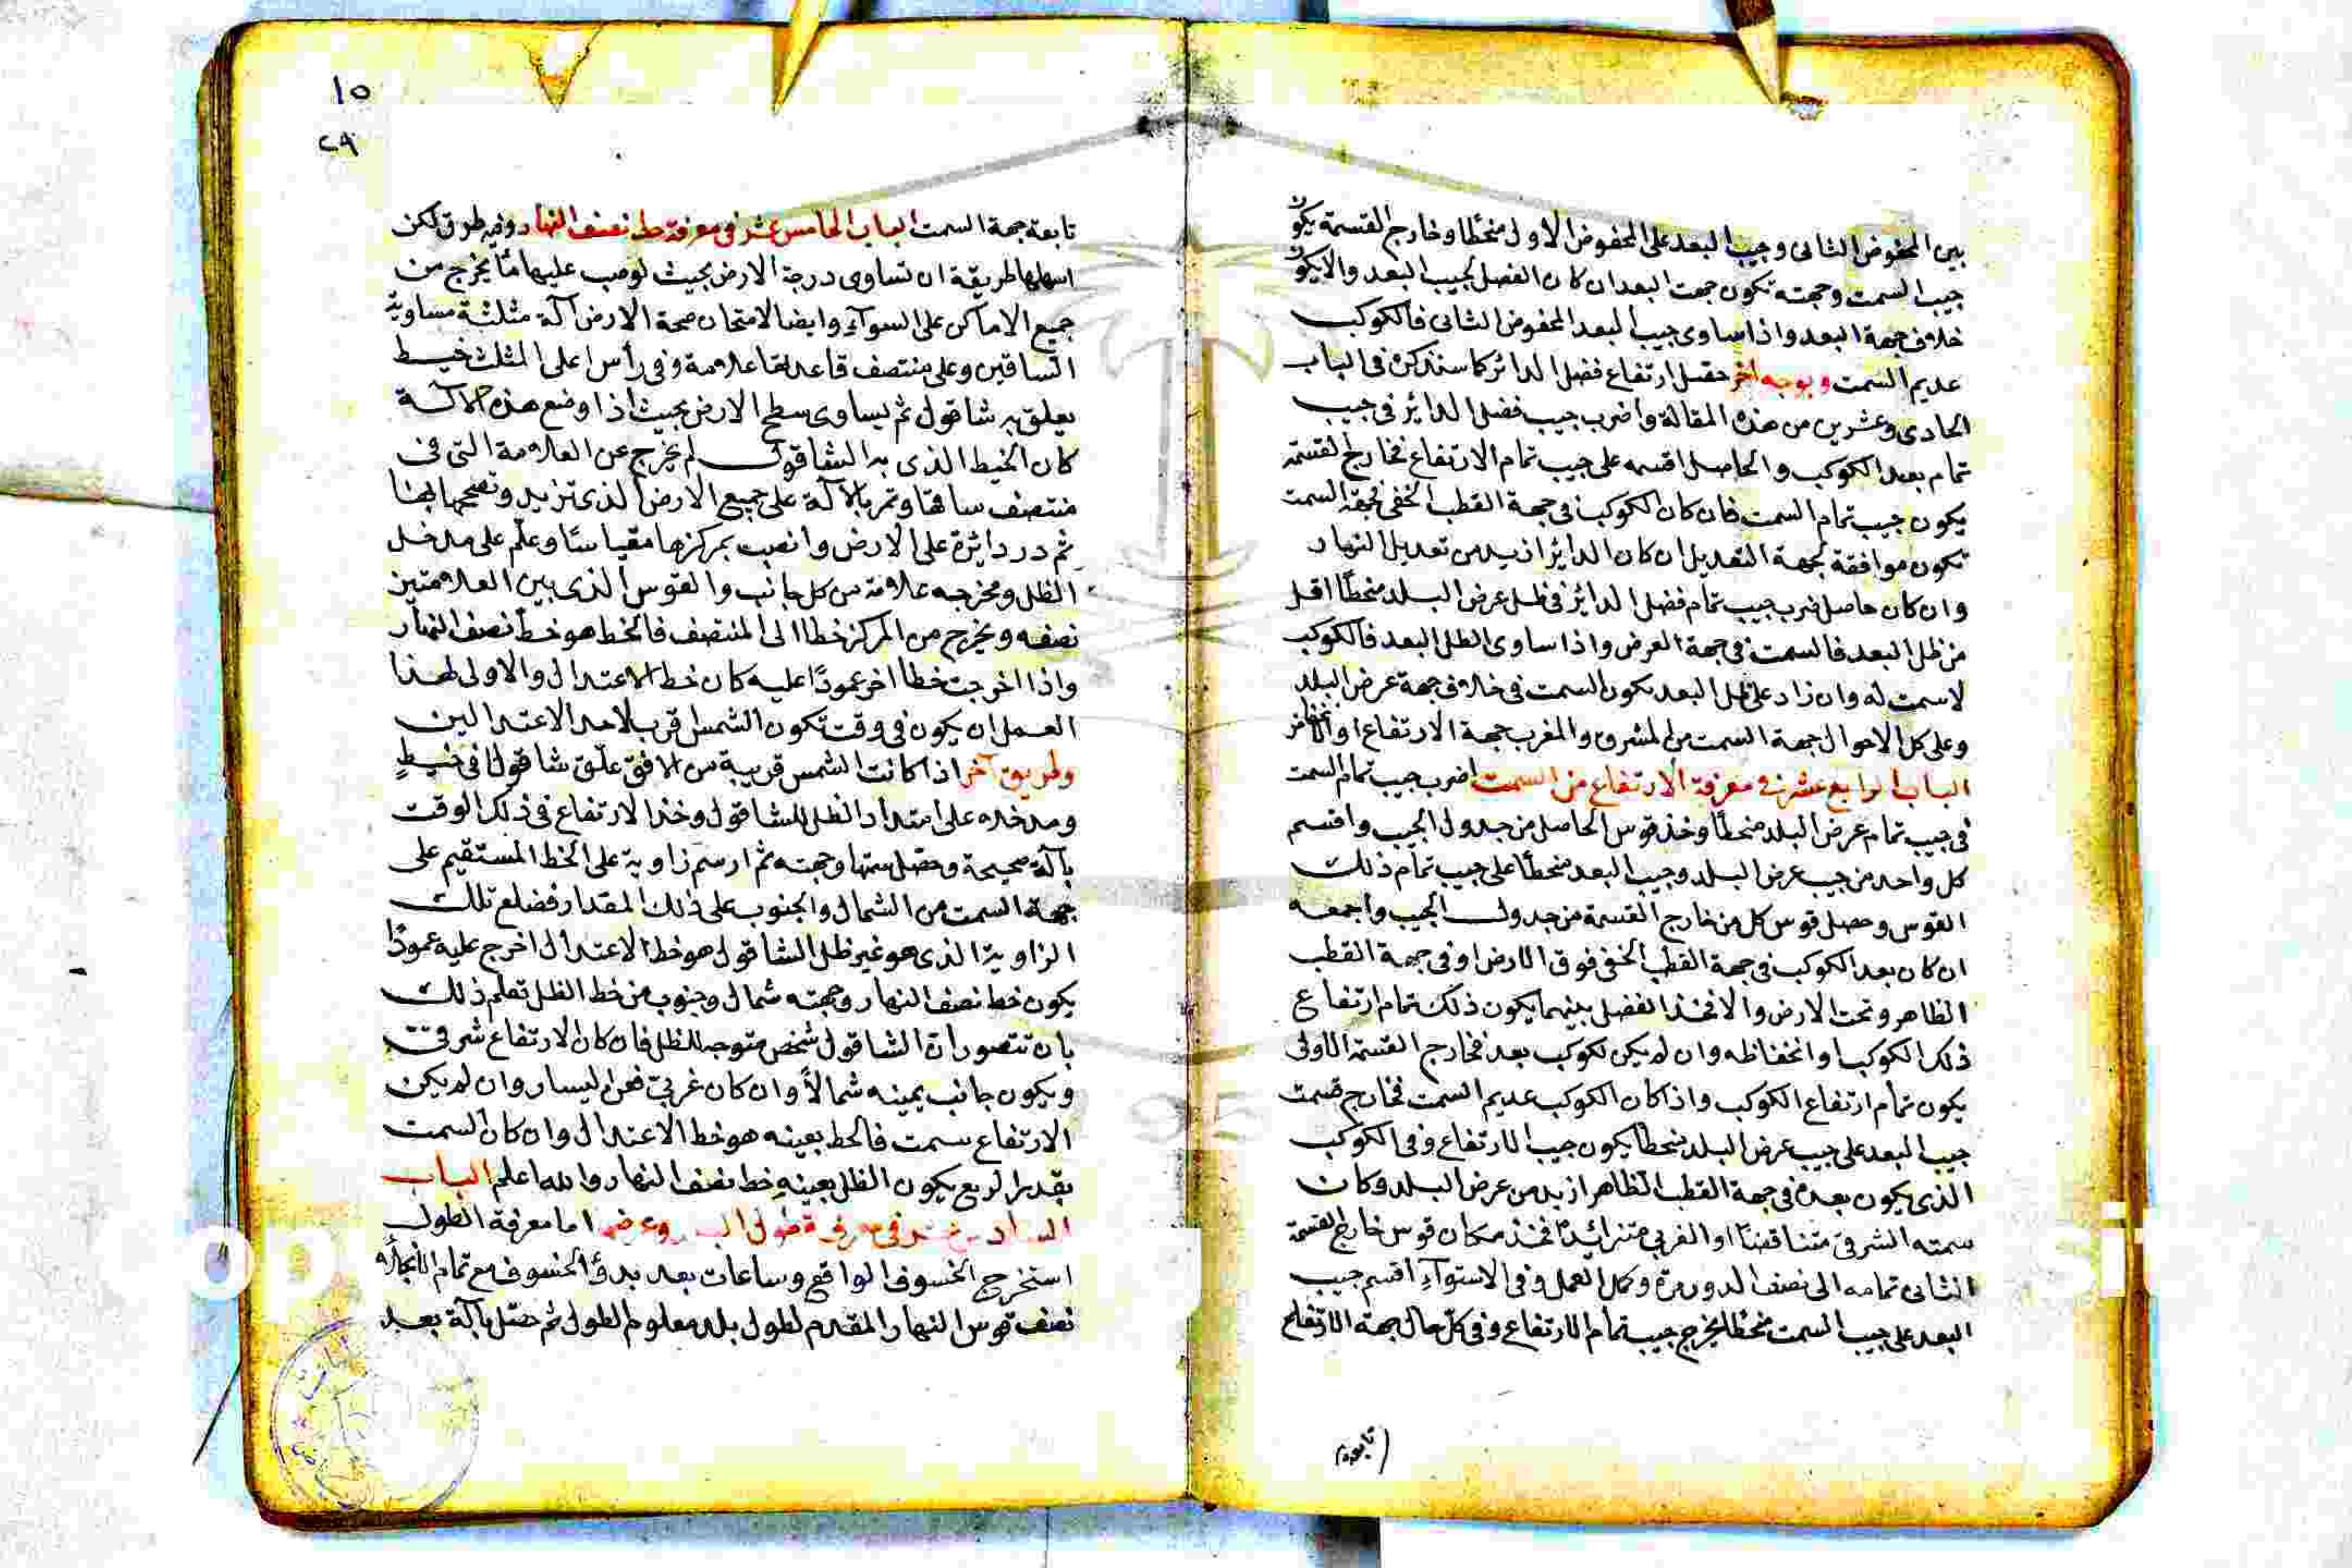 بين المحفوض الثانى وجيب البعد على المحفوض الاول منحطا وخارج القسمة يكون
جيب السمت وجهته تكون جهت البعد ان كان الفضل لجيب البعد والا يكون
خلاف جهة البعد واذا ساوى جيب البعد المحفوض الثانى فالكوكب
عديم السمت وبوجه اخر حصل ارتفاع فضل الدائر كما سنذكره فى الباب
الحادى وعشرين من هذه المقالة واضرب جيب فضل الدائر فى جيب
تمام بعد الكوكب والحاصل اقسمه على جيب تمام الارتفاع فخارج القسمة
يكون جيب تمام السمت فان كان الكوكب فى جهة القطب الخفى فجهة السمت
تكون موافقة لجهة التعديل ان كان الدائر ازيد من تعديل النهار
وان كان حاصل ضرب جيب تمام فضل الدائر فى ظل عرض البلد منحطا اقل
من ظل البعد فالسمت فى جهة العرض واذا ساوى الظل البعد فالكوكب
لاسمت له وان زاد على ظل البعد يكون السمت فى خلاف جهة عرض البلد
وعلى كل الاحوال جهة السمت من المشرق والمغرب جهة الارتفاع او
الباب الرابع عشر فى معرفة الارتفاع من السمت اضرب جيب تمام السمت
فى جيب تمام عرض البلد منحطا وخذ قوس الحاصل من جدول الجيب واقسم
كل واحد من جيب عرض البلد وجيب البعد منحطا على جيب تمام ذلك
القوس وحصل قوس كل من خارج القسمة من جدول الجيب واجمعه
ان كان بعد الكوكب فى جهة القطب الخفى فوق الارض او فى جهة القطب
الظاهر وتحت الارض والا فخذ الفضل بينهما يكون ذلك تمام ارتفاع
ذلك الكوكب او انخفاظه وان لم يكن لكوكب بعد فخارج القسمة الاولى
يكون تمام ارتفاع الكوكب واذا كان الكوكب عديم السمت فخارج قسمت
جيب البعد على جيب عرض البلد منحطا يكون جيب الارتفاع وفى الكوكب
الذى يكون بعده فى جهة القطب الظاهر ازيد من عرض البلد وكان
سمته الشرقى متناقضا او الغربى متزائدا فخذ مكان قوس خارج القسمة
الثانى تمامه الى نصف الدور مرة وكمل العمل وفى الاستوآء اقسم جيب
البعد على جيب السمت منحطا يخرج جيب تمام الارتفاع وفى كل حال جهة الارتفاع
تابعة
١٥
٢٩
تابعة جهة السمت الباب الخامس عشر فى معرفة خط نصف النهار وفيه طرق لكن
اسهلها طريقة ان تساوى درجة الارض بحيث لو صب عليها مآ يخرج من
جميع الاماكن على السوآء وايضا لامتحان صحة الارض آلة مثلثة مساوية
الساقين وعلى منتصف قاعدتها علامة وفى رأس اعلى المثلث خيط
يعلق به شاقول ثم يساوى سطح الارض بحيث اذا وضع هذه الالة
كان الخيط الذى به الشاقول لم يخرج عن العلامة التى فى
منتصف ساقها وتمر بالآلة على جميع الارض الذى تريد وتصححها بهذا
ثم در دايرة على الارض وانصب بمركزها مقياسا وعلّم على مدخل
الظل ومخرجه علامة من كل جانب والقوس الذى بين العلامتين
نصفه ويخرج من المركز خطا الى المنتصف فالخط هو خط نصف النهار
واذا اخرجت خطا اخر عمودا عليه كان خط الاعتدال والاولى لهذا
العمل ان يكون فى وقت تكون الشمس اقرب لاحد الاعتدالين
وطريق آخر اذا كانت الشمس قريبة من الافق علّق شاقولا فى خيط
ومد خطه على امتداد الظل للشاقول وخذ الارتفاع فى ذلك الوقت
بآلة صحيحة وحصل سمتها وجهته ثم ارسم زاوية على الخط المستقيم على
جهة السمت من الشمال والجنوب على ذلك المقدار فضلع تلك
الزاوية الذى هو غير ظل الشاقول هو خط الاعتدال اخرج عليه عمودا
يكون خط نصف النهار وجهته شمال وجنوب من خط الظل تعلم ذلك
بان تتصور ان الشاقول شخص متوجه للظل فان كان الارتفاع شرقى
ويكون جانب يمينه شمالا وان كان غربى فعن اليسار وان لم يكن
الارتفاع سمت فالخط بعينه هو خط الاعتدال وان كان السمت
بقدر الربع يكون الظل بعينه خط نصف النهار والله اعلم الباب
السادس عشر فى معرفة طول البلد وعرضه اما معرفة الطول
استخرج الخسوف الواقع وساعات بعد بدؤ الخسوف مع تمام الانجلآء
نصف قوس النهار المقدم لطول بلد معلوم الطول ثم حصل بآلة بعد